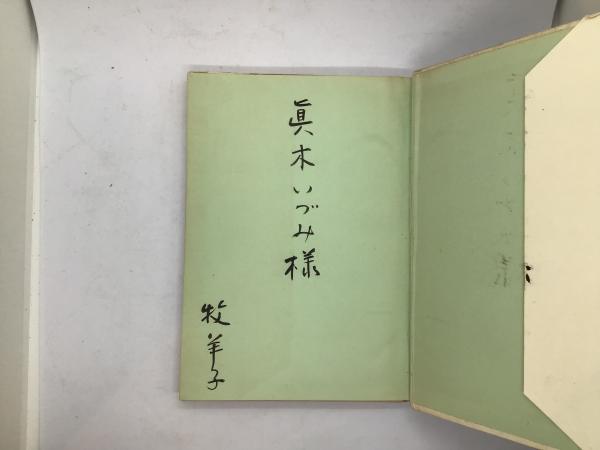 眞木いづみ様
牧羊子